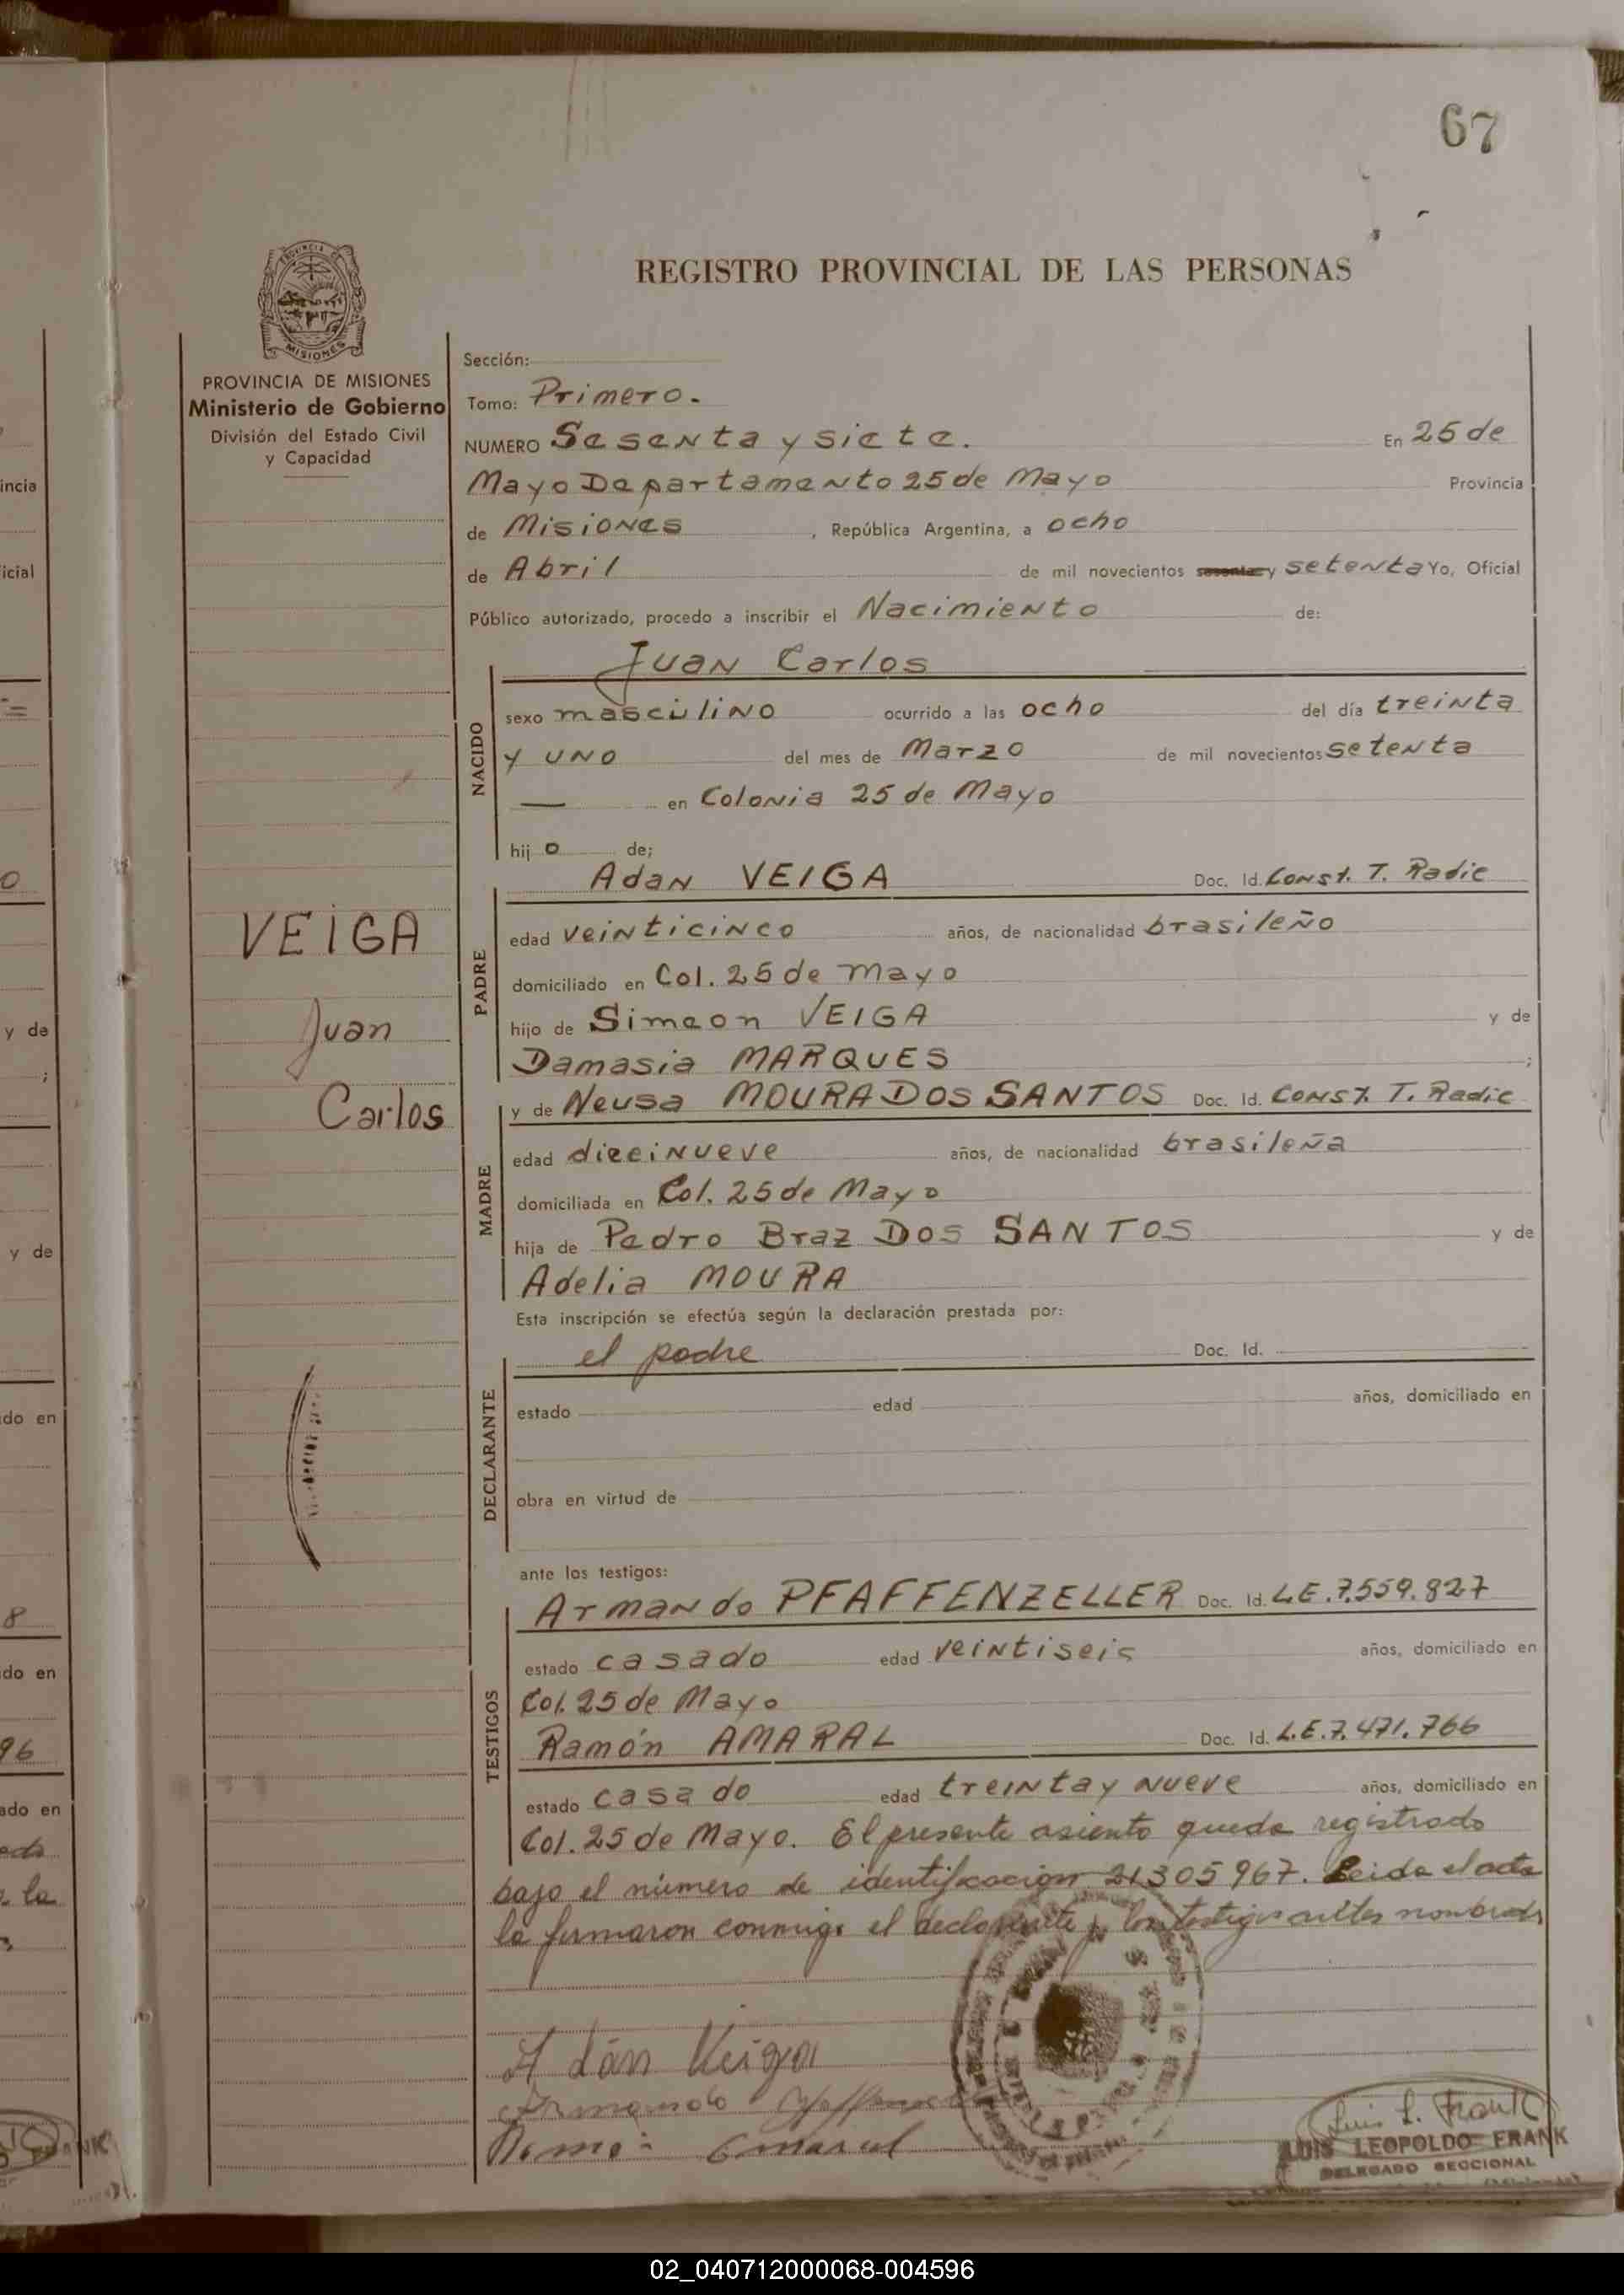 67
REGISTRO PROVINCIAL DE LAS PERSONAS
PROVINCIA DE
MISIONES
PROVINCIA DE MISIONES
Ministerio de Gobierno
División del Estado Civil
y Capacidad
Sección:
Tomo: Primero.
NUMERO Sesenta y siete. En 25 de
Mayo Departamento 25 de Mayo Provincia
de Misiones, República Argentina, a ocho
de Abril de mil novecientos sesenta y setenta Yo, Oficial
Público autorizado, procedo a inscribir el Nacimiento de:
NACIDO
Juan Carlos
sexo masculino ocurrido a las ocho del día treinta
y uno del mes de Marzo de mil novecientos setenta
— en Colonia 25 de Mayo
hijo de;
VEIGA
Juan
Carlos
PADRE
Adan VEIGA Doc. Id. Const. T. Radic
edad veinticinco años, de nacionalidad brasileño
domiciliado en Col. 25 de Mayo
hijo de Simeon VEIGA y de
Damasia MARQUES ;
MADRE
y de Neusa MOURA DOS SANTOS Doc. Id. Const. T. Radic
edad diecinueve años, de nacionalidad brasileña
domiciliada en Col. 25 de Mayo
hija de Pedro Braz DOS SANTOS y de
Adelia MOURA
Esta inscripción se efectúa según la declaración prestada por:
DECLARANTE
el padre Doc. Id.
estado edad años, domiciliado en
obra en virtud de
ante los testigos:
TESTIGOS
Armando PFAFFENZELLER Doc. Id. L.E. 7.559.827
estado casado edad veintiseis años, domiciliado en
Col. 25 de Mayo
Ramón AMARAL Doc. Id. L.E. 7.471.766
estado casado edad treinta y nueve años, domiciliado en
Col. 25 de Mayo. El presente asiento queda registrado
bajo el número de identificación 21305967. Leida el acta
la firmaron conmigo el declarante y los testigos antes nombrados
Adán Veiga
Armando
Amaral
Luis L. Frank
LUIS LEOPOLDO FRANK
DELEGADO SECCIONAL
incia
icial
y de
;
y de
do en
8
do en
96
ado en
la
02_040712000068-004596